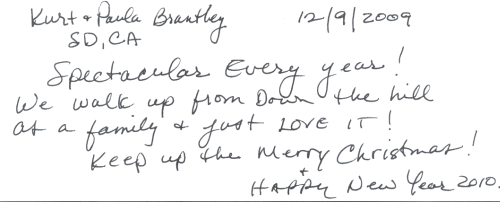 Kurt + Paula Brantley 12/9/2009
SD, CA
Spectacular Every year!
We walk up from Down the hill
as a family + just LOVE IT!
Keep up the Merry Christmas!
+
HAPPY New Year 2010.